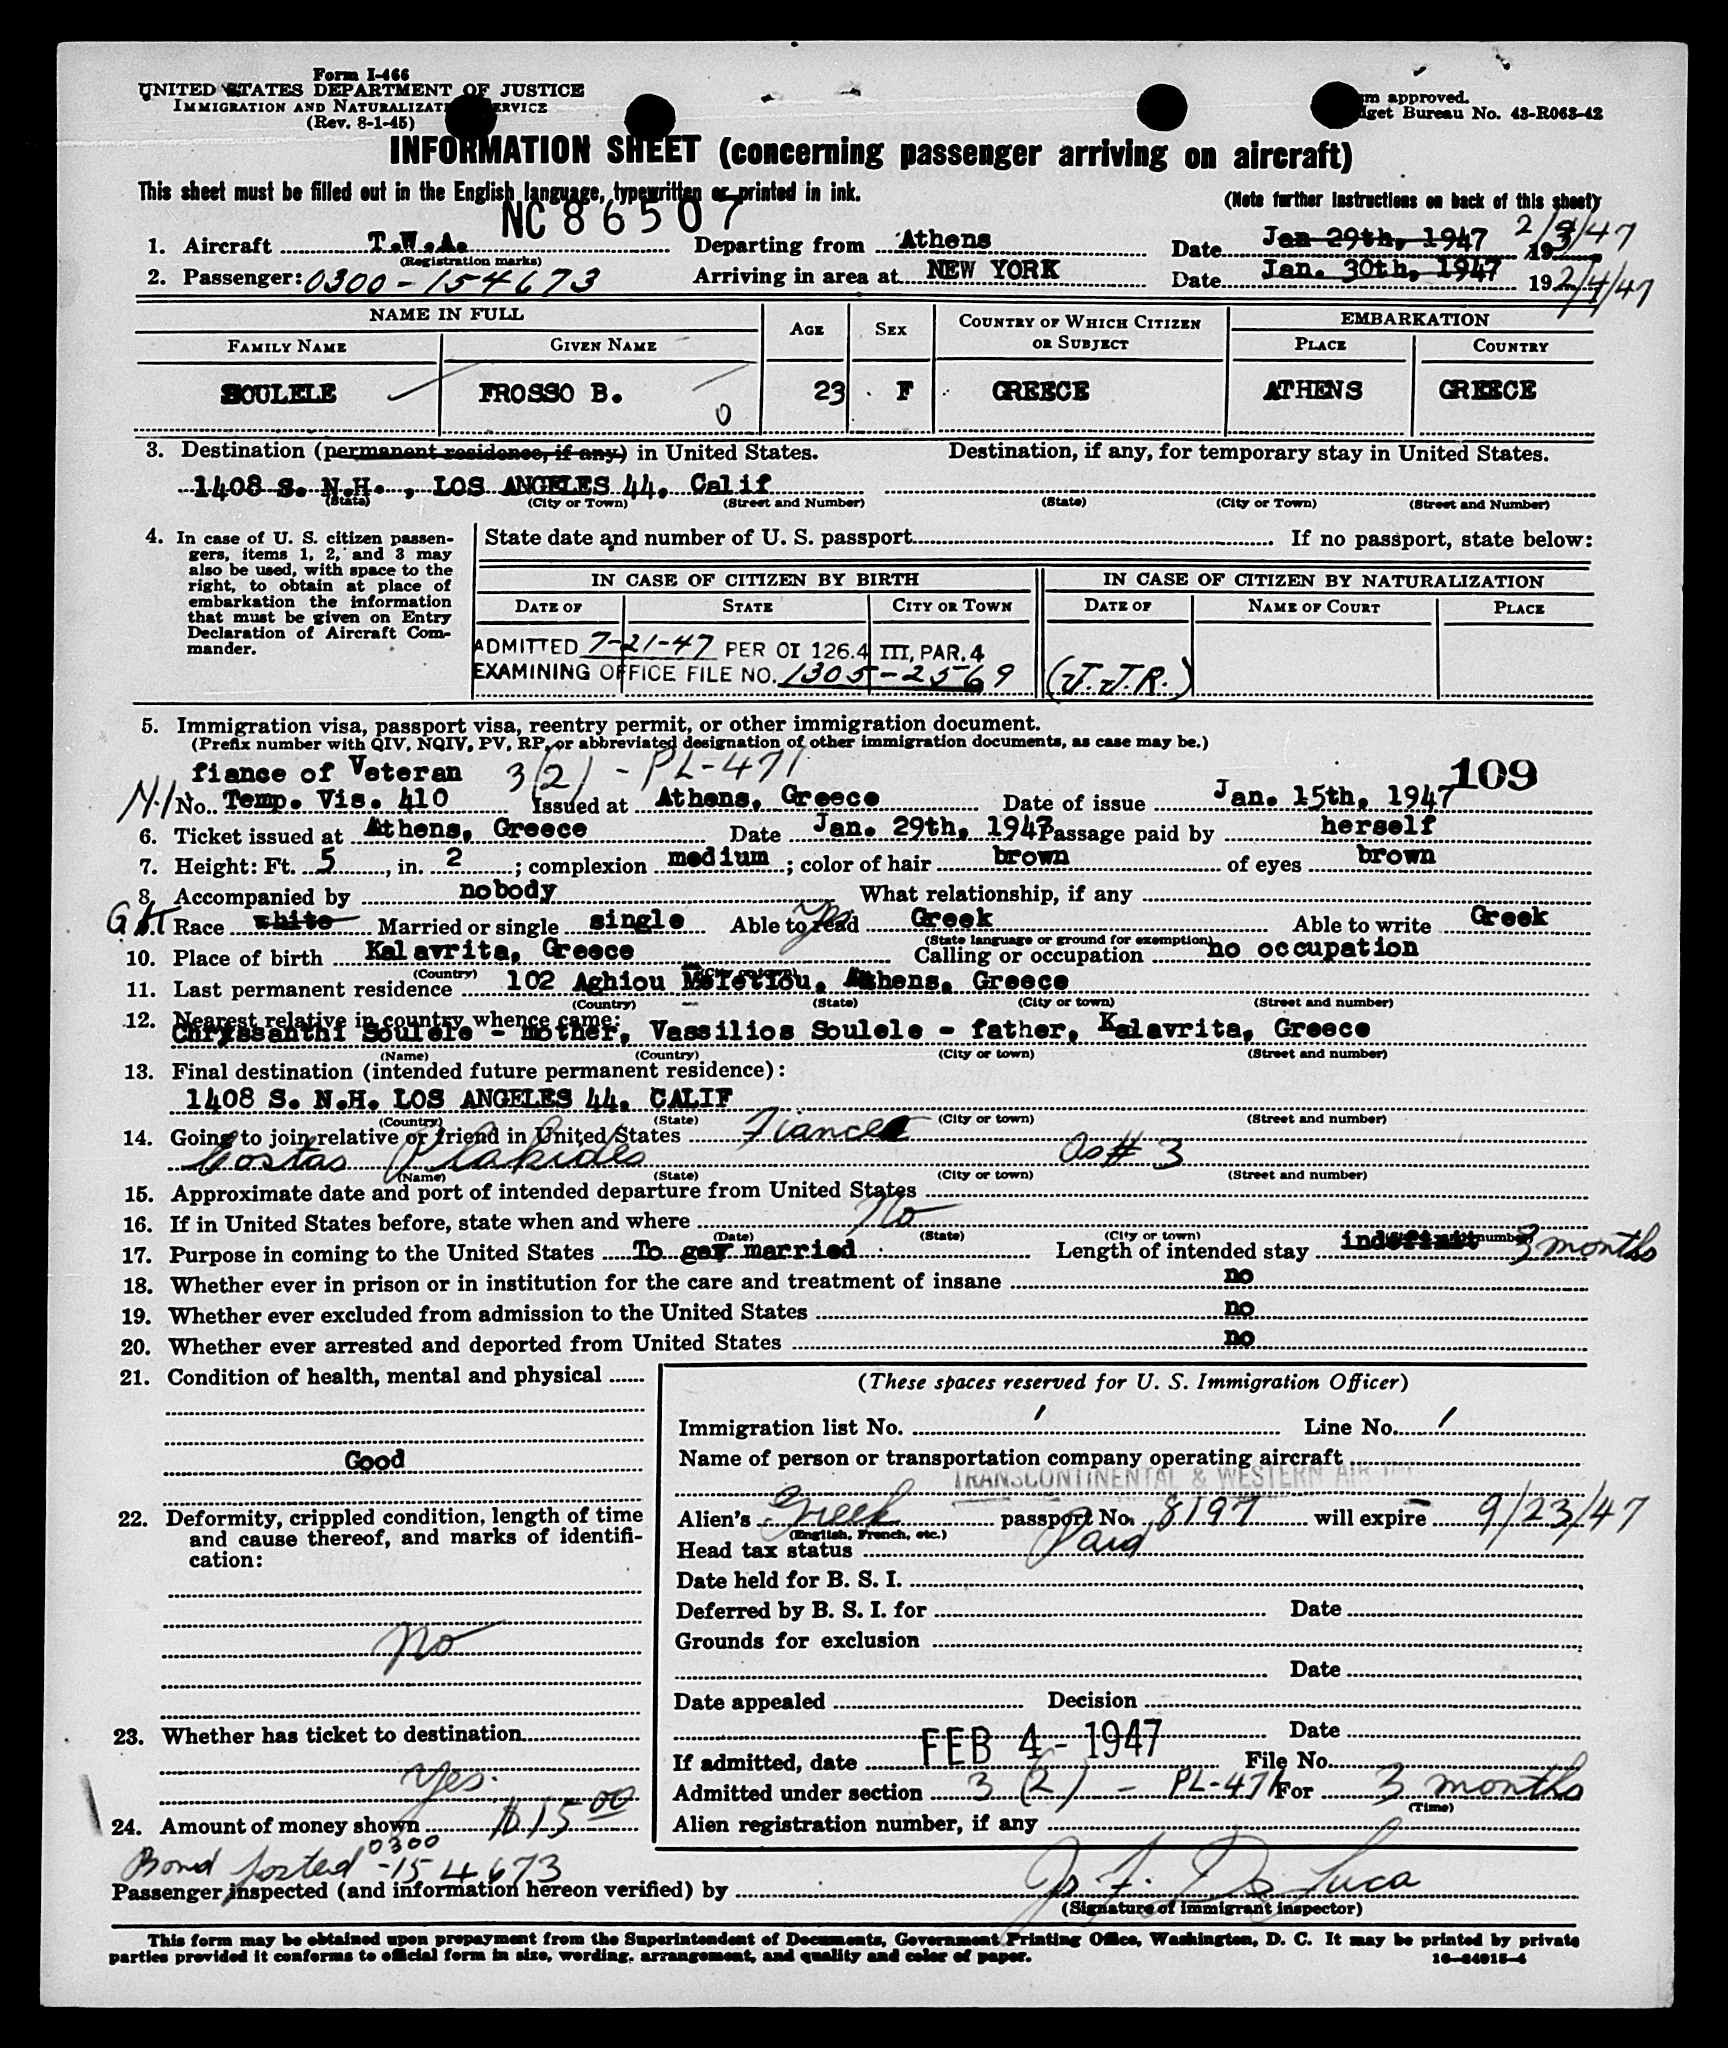 Form I-466
UNITED STATES DEPARTMENT OF JUSTICE
IMMIGRATION AND NATURALIZATION SERVICE
(Rev. 8-1-45)
m approved.
dget Bureau No. 43-R063-42
INFORMATION SHEET (concerning passenger arriving on aircraft)
This sheet must be filled out in the English language, typewritten or printed in ink.
(Note further instructions on back of this sheet)
NC 86507
1. Aircraft T.W.A. Departing from Athens Date Jan 29th, 1947 19 2/3/47
(Registration marks)
2. Passenger: 0300-154673 Arriving in area at NEW YORK Date Jan. 30th, 1947 19 2/4/47
NAME IN FULL AGE SEX COUNTRY OF WHICH CITIZEN OR SUBJECT EMBARKATION
FAMILY NAME GIVEN NAME PLACE COUNTRY
SOULELE FROSSO B. 23 F GREECE ATHENS GREECE
0
3. Destination (permanent residence, if any) in United States. Destination, if any, for temporary stay in United States.
1408 S. N.H. , LOS ANGELES 44, Calif
(State) (City or Town) (Street and Number) (State) (City or Town) (Street and Number)
4. In case of U. S. citizen passengers, items 1, 2, and 3 may also be used, with space to the right, to obtain at place of embarkation the information that must be given on Entry Declaration of Aircraft Commander.
State date and number of U. S. passport If no passport, state below:
IN CASE OF CITIZEN BY BIRTH IN CASE OF CITIZEN BY NATURALIZATION
DATE OF STATE CITY OR TOWN DATE OF NAME OF COURT PLACE
ADMITTED 7-21-47 PER OI 126.4 III, PAR. 4
EXAMINING OFFICE FILE NO. 1305-2569 (J.J.R.)
5. Immigration visa, passport visa, reentry permit, or other immigration document.
(Prefix number with QIV, NQIV, PV, RP, or abbreviated designation of other immigration documents, as case may be.)
fiance of Veteran 3(2) - PL-471 109
No. Temp. Vis. 410 Issued at Athens, Greece Date of issue Jan. 15th, 1947
6. Ticket issued at Athens, Greece Date Jan. 29th, 1947 Passage paid by herself
7. Height: Ft. 5, in. 2; complexion medium; color of hair brown of eyes brown
8. Accompanied by nobody What relationship, if any
Race white Married or single single Able to read yes Greek Able to write Greek
(State language or ground for exemption)
10. Place of birth Kalavrita, Greece Calling or occupation no occupation
(Country) (City or town)
11. Last permanent residence 102 Aghiou Meletiou, Athens, Greece
(Country) (State) (City or town) (Street and number)
12. Nearest relative in country whence came:
Chryssanthi Soulele - mother, Vassilios Soulele - father, Kalavrita, Greece
(Name) (Country) (City or town) (Street and number)
13. Final destination (intended future permanent residence):
1408 S. N.H. LOS ANGELES 44, CALIF
(Country) (State) (City or town) (Street and number)
14. Going to join relative or friend in United States Fiance
Costas Plakides As# 3
(Name) (State) (City or town) (Street and number)
15. Approximate date and port of intended departure from United States
16. If in United States before, state when and where No
(Date) (State) (City or town)
17. Purpose in coming to the United States To get married Length of intended stay indefinit 3 months
18. Whether ever in prison or in institution for the care and treatment of insane no
19. Whether ever excluded from admission to the United States no
20. Whether ever arrested and deported from United States no
21. Condition of health, mental and physical
Good
22. Deformity, crippled condition, length of time and cause thereof, and marks of identification:
No
23. Whether has ticket to destination
Yes.
24. Amount of money shown $15.00
(These spaces reserved for U. S. Immigration Officer)
Immigration list No. 1 Line No. 1
Name of person or transportation company operating aircraft
TRANSCONTINENTAL & WESTERN AIR
Alien's Greek passport No. 8197 will expire 9/23/47
(English, French, etc.)
Head tax status Paid
Date held for B. S. I.
Deferred by B. S. I. for Date
Grounds for exclusion
Date
Date appealed Decision
Date
If admitted, date FEB 4 - 1947 File No.
Admitted under section 3 (2) - PL-471 For 3 months
(Time)
Alien registration number, if any
Bond posted 0300-154673
Passenger inspected (and information hereon verified) by
(Signature of immigrant inspector)
This form may be obtained upon prepayment from the Superintendent of Documents, Government Printing Office, Washington, D. C. It may be printed by private
parties provided it conforms to official form in size, wording, arrangement, and quality and color of paper.
16-24915-4